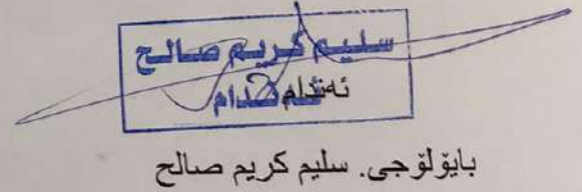 سليم كريم صالح
ئەندام
ئەندام
بایۆلۆجی. سليم كريم صالح